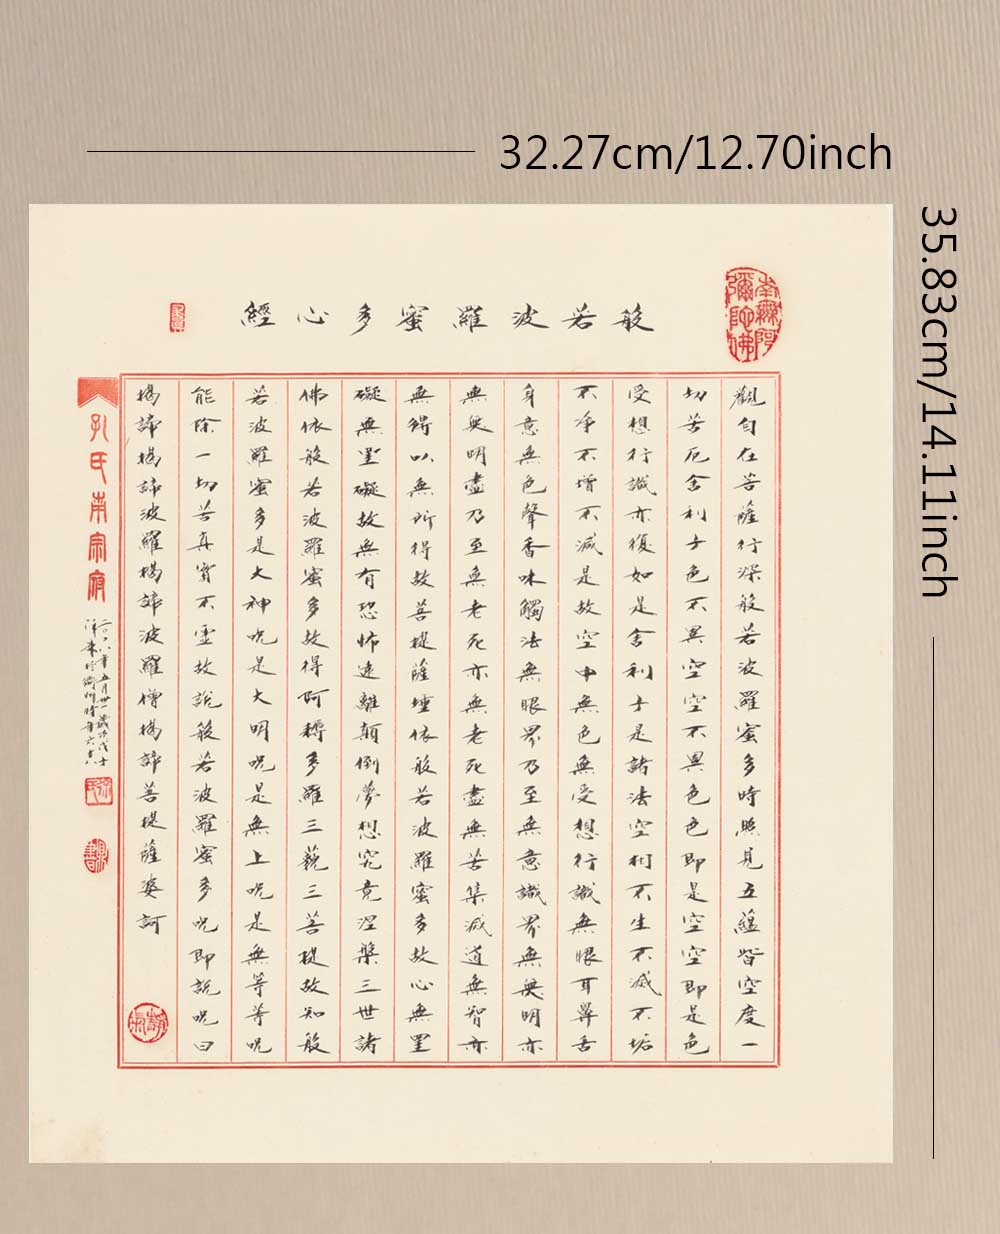 32.27cm/12.70inch
35.83cm/14.11inch
南無阿彌陀佛
般若波羅蜜多心經
觀自在菩薩行深般若波羅蜜多時照見五蘊皆空度一
切苦厄舍利子色不異空空不異色色即是空空即是色
受想行識亦復如是舍利子是諸法空相不生不滅不垢
不淨不增不減是故空中無色無受想行識無眼耳鼻舌
身意無色聲香味觸法無眼界乃至無意識界無無明亦
無無明盡乃至無老死亦無老死盡無苦集滅道無智亦
無得以無所得故菩提薩埵依般若波羅蜜多故心無罣
礙無罣礙故無有恐怖遠離顛倒夢想究竟涅槃三世諸
佛依般若波羅蜜多故得阿耨多羅三藐三菩提故知般
若波羅蜜多是大神咒是大明咒是無上咒是無等等咒
能除一切苦真實不虛故說般若波羅蜜多咒即說咒曰
揭諦揭諦波羅揭諦波羅僧揭諦菩提薩婆訶
孔氏南宗府